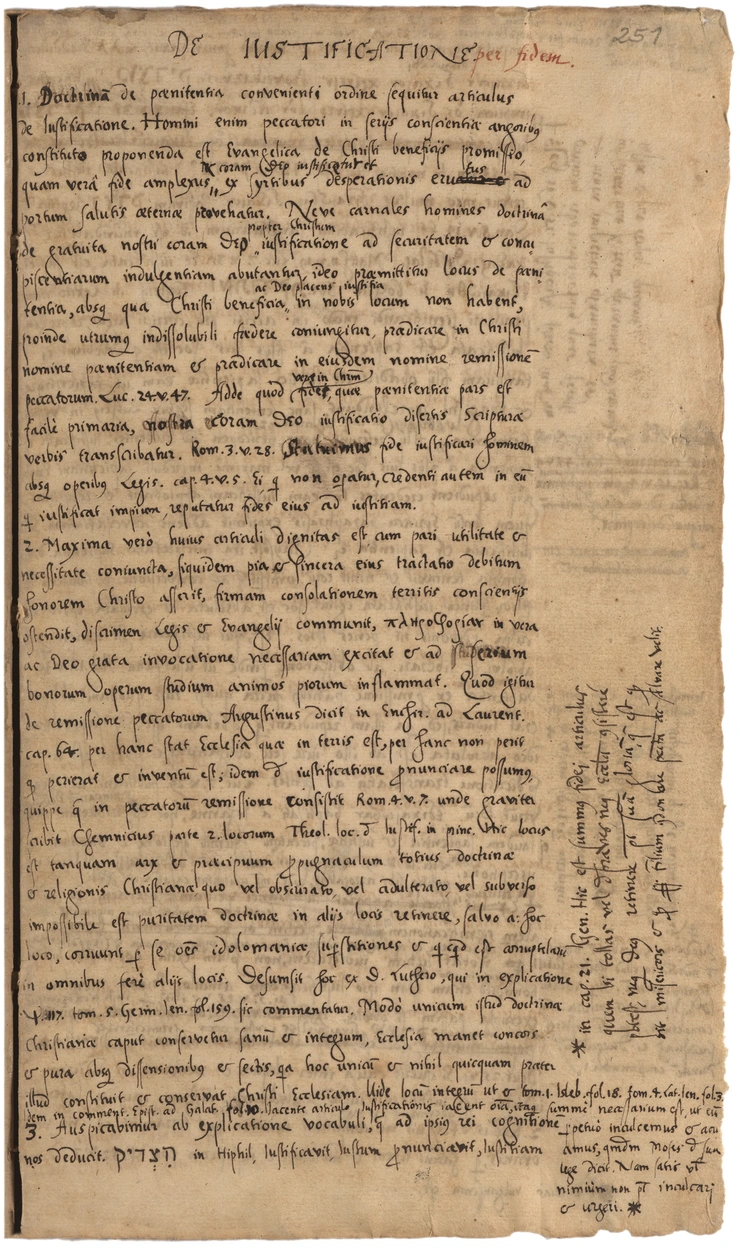 251
DE IUSTIFICATIONE per fidem.
1. Doctrinã de pœnitentia convenienti ordine sequitur articulus
de Iustificatione. Homini enim peccatori in serijs conscientiæ angoribꝰ
constituto proponenda est Evangelica de Christi beneficijs promissio
coram Deo iustificatur et
quam verâ fide amplexus, ex syrtibus desperationis eruatur ad
portum salutis æternæ provehatur. Neve carnales homines doctrinã
propter Christum
de gratuita nostri coram Deo iustificatione ad securitatem & concu
piscentiarum indulgentiam abutantur, ideo præmittitur locus de pœni
ac Deo placens iustitia
tentia, absq̃ qua Christi beneficia in nobis locum non habent,
proinde utrumq̃ indissolubili fœdere coniungitur, prædicare in Christi
nomine pœnitentiam & prædicare in eiusdem nomine remissionẽ
vera in Chrm̃
peccatorum. Luc. 24. v. 47. Adde quòd fides, quæ pœnitentiæ pars est
facilè primaria, nostra coram Deo iustificatio disertis Scripturæ
verbis transcribatur. Rom. 3. v. 28. Statuimus fide iustificari hominem
absq̃ operibus Legis. cap. 4. v. 5. Ei q̃ non operatur, credenti autem in eũ
q̃ iustificat impium, reputatur fides eius ad iustitiam.
2. Maxima verò huius articuli dignitas est cum pari utilitate &
necessitate coniuncta, siquidem pia & sincera eius tractatio debitum
honorem Christo asserit, firmam consolationem territis conscientijs
ostendit, discrimen Legis & Evangelij communit, πληροφοφίαν in vera
ac Deo grata invocatione necessariam excitat & ad serium
bonorum operum studium animos piorum inflammat. Quod igitur
de remissione peccatorum Augustinus dicit in Enchir. ad Laurent.
cap. 64. per hanc stat Ecclesia quæ in terris est, per hanc non perit
q̃ perierat & inventũ est, idem d̃ iustificatione pronunciare possumꝰ,
quippe q̃ in peccatorũ remissione consistit Rom. 4. v. 7. unde graviter
scribit Chemnicius parte 2. locorum Theol. loc. d̃ Iustif. in princ. Hic locus
est tanquam arx & præcipuum propugnaculum totius doctrinæ
& religionis Christianæ quo vel obscurato, vel adulterato, vel subverso
impossibile est puritatem doctrinæ in alijs locis retinere, salvo a. hoc
loco, corruunt per se oẽs idolomaniæ, superstitiones & q̃cq̃d est corruptelarũ
in omnibus ferè alijs locis. Desumsit hoc ex D. Luthero, qui in explicatione
ψ. 117. tom. 5. Germ. Ien. fol. 159. sic commentatur. Modò unicum istud doctrinæ
Christianæ caput conservetur sanũ & integrum, Ecclesia manet concors
& pura absq̃ dissensionibus & sectis, q̃a hoc unicũ & nihil quicquam præter
illud constituit & conservat Christi Ecclesiam. Vide locũ integrũ ut & tom. 1. Isleb. fol. 18. Tom. 4. Lat. Ien. fol. 3.
Idem in comment. Epist. ad Galat. fol. 10. Iacente articulo Iustificationis iacent oĩa, itaq̃ summè necessarium est, ut eũ
perpetuò inculcemus & acu
amus, quẽadm̃ Moses d̃ sua
lege dicit. Nam satis vel
nimiùm non pt̃ inculcari
& urgeri. *
3. Auspicabimur ab explicatione vocabuli, q̃ ad ipsiꝰ rei cognitionẽ
nos deducit. הִצְדִּיק in Hiphil, Iustificavit, iustum pronunciavit, Iustitiam
* in cap. 21. Gen. Hic est summꝰ fidei articulus
quem si tollas vel